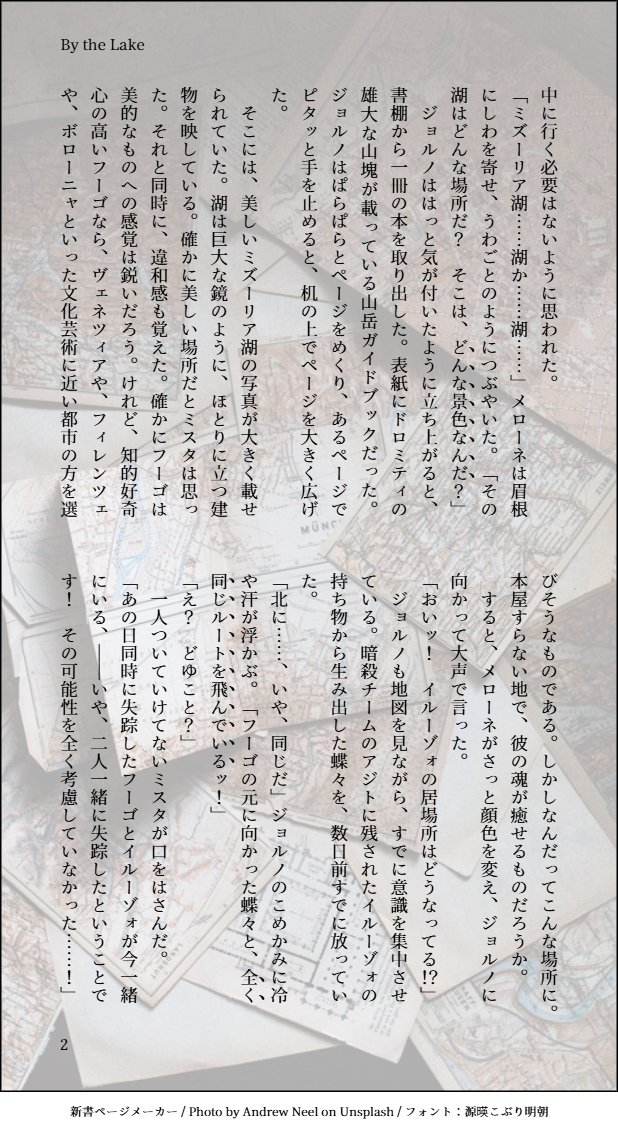 By the Lake
中に行く必要はないように思われた。
「ミズーリア湖……湖か……湖……」メローネは眉根
にしわを寄せ、うわごとのようにつぶやいた。「その
湖はどんな場所だ？　そこは、どんな景色なんだ？」
　ジョルノははっと気が付いたように立ち上がると、
書棚から一冊の本を取り出した。表紙にドロミティの
雄大な山塊が載っている山岳ガイドブックだった。
ジョルノはぱらぱらとページをめくり、あるページで
ピタッと手を止めると、机の上でページを大きく広げ
た。
　そこには、美しいミズーリア湖の写真が大きく載せ
られていた。湖は巨大な鏡のように、ほとりに立つ建
物を映している。確かに美しい場所だとミスタは思っ
た。それと同時に、違和感も覚えた。確かにフーゴは
美的なものへの感覚は鋭いだろう。けれど、知的好奇
心の高いフーゴなら、ヴェネツィアや、フィレンツェ
や、ボローニャといった文化芸術に近い都市の方を選
びそうなものである。しかしなんだってこんな場所に。
本屋すらない地で、彼の魂が癒せるものだろうか。
　すると、メローネがさっと顔色を変え、ジョルノに
向かって大声で言った。
「おいッ！　イルーゾォの居場所はどうなってる!?」
　ジョルノも地図を見ながら、すでに意識を集中させ
ている。暗殺チームのアジトに残されたイルーゾォの
持ち物から生み出した蝶々を、数日前すでに放ってい
た。
「北に……、いや、同じだ」ジョルノのこめかみに冷
や汗が浮かぶ。「フーゴの元に向かった蝶々と、全く
同じルートを飛んでいるッ！」
「え？　どゆこと？」
　一人ついていけてないミスタが口をはさんだ。
「あの日同時に失踪したフーゴとイルーゾォが今一緒
にいる、――いや、二人一緒に失踪したということで
す！　その可能性を全く考慮していなかった……！」
2
MÜNC
新書ページメーカー / Photo by Andrew Neel on Unsplash / フォント：源暎こぶり明朝